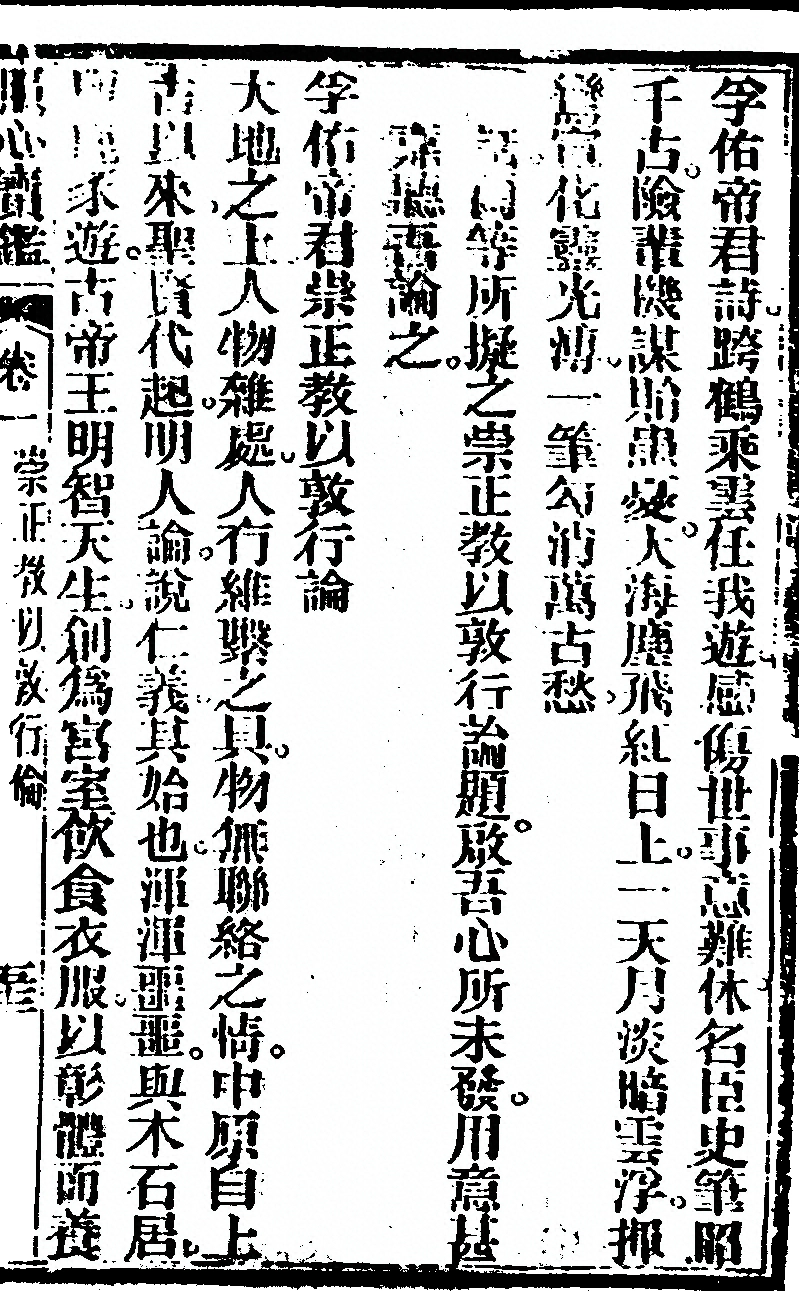 孚佑帝君詩跨鶴乘雲任我遊感傷世事意難休名臣史筆昭
千古險叢機謀貽患憂大海塵飛紅日上一天月淡暗雲浮揮
鸞宣化靈光溥一筆勾消萬古愁
等所擬之崇正教以敦行論題啟吾心所未發用意甚
論之
孚佑帝君崇正教以敦行論
大地之上人物雜處人有維繫之具物無聯絡之情中原自上
古以來聖賢代起明人論說仁義其始也渾渾噩噩與木石居
豕遊古帝王明智天生創爲宮室飲食衣服以彰體而養
心寶鑑 卷一 崇正教以敦行倫